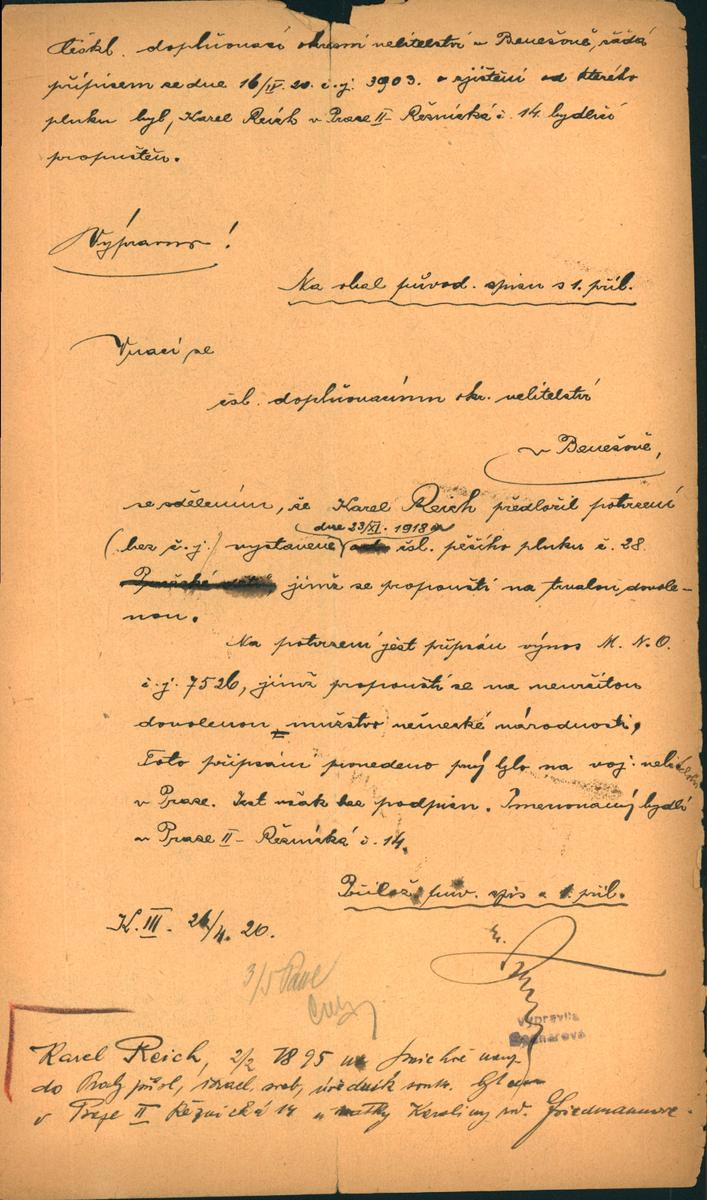 Českl. doplňovací okresní velitelství v Benešově, žádá
přípisem ze dne 16/IV. 20. č. j. 3903. o zjištění od kterého
pluku byl, Karel Reich v Praze II - Řeznická č. 14. bydlící
propuštěn.
Výpravna!
Na obal původ. spisu s 1. příl.
Vrací se
čsl. doplňovacímu okr. velitelství
v Benešově,
se sdělením, že Karel Reich předložil potvrzení
dne 23/XI. 1918
(bez č. j.) vystavené čsl. pěšího pluku č. 28.
jímž se propouští na trvalou dovole-
nou.
Na potvrzení jest připsán výnos M. N. O.
č. j. 7526, jímž propouští se na neurčitou
dovolenou mužstvo německé národnosti.
Toto připsání provedeno prý bylo na voj.
v Praze. Jest však bez podpisu. Jmenovaný bydlí
v Praze II - Řeznická č. 14.
Přilož. spis a 1. příl.
K. III. 26/4. 20.
3/5
Vypravila
Karel Reich, 2/2 1895 na Smíchově
do Prahy přísl, israel. svob, úředník
v Praze II Řeznická 14 u matky Karoliny roz. Friedmannové.